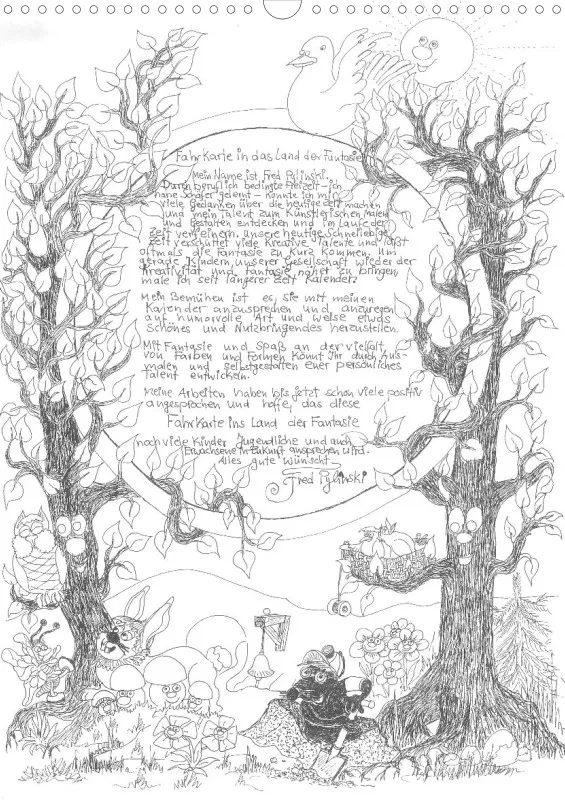 Fahrkarte in das Land der Fantasie
Mein Name ist Fred Pylinski.
Durch beruflich bedingte Freizeit - ich
habe Schäfer gelernt - konnte ich mir
viele Gedanken über die heutige Zeit machen
und mein Talent zum Künstlerischen malen
und Gestalten entdecken und im Laufe der
Zeit verfeinern. unsere heutige Schnellebige
Zeit verschüttet viele Kreative Talente und läßt
oftmals die Fantasie zu kurz kommen. um
grade Kindern unserer Gesellschaft wieder der
Kreativität und fantasie näher zu bringen,
male ich seit längerer Zeit Kalender.
Mein Bemühen ist es, sie mit meinen
Kalender anzusprechen und anzuregen
auf humorvolle Art und weise etwas
schönes und Nutzbringendes herzustellen.
Mit Fantasie und Spaß an der vielfalt
von Farben und Formen könnt Ihr durch Aus-
malen und selbstgestalten Euer persönliches
Talent entwickeln.
Meine Arbeiten haben bis jetzt schon viele positiv
angesprochen und hoffe, das diese
Fahrkarte ins Land der Fantasie
noch viele Kinder Jugendliche und auch
Erwachsene in Zukunft ansprechen wird.
Alles gute wünscht
Fred Pylinski